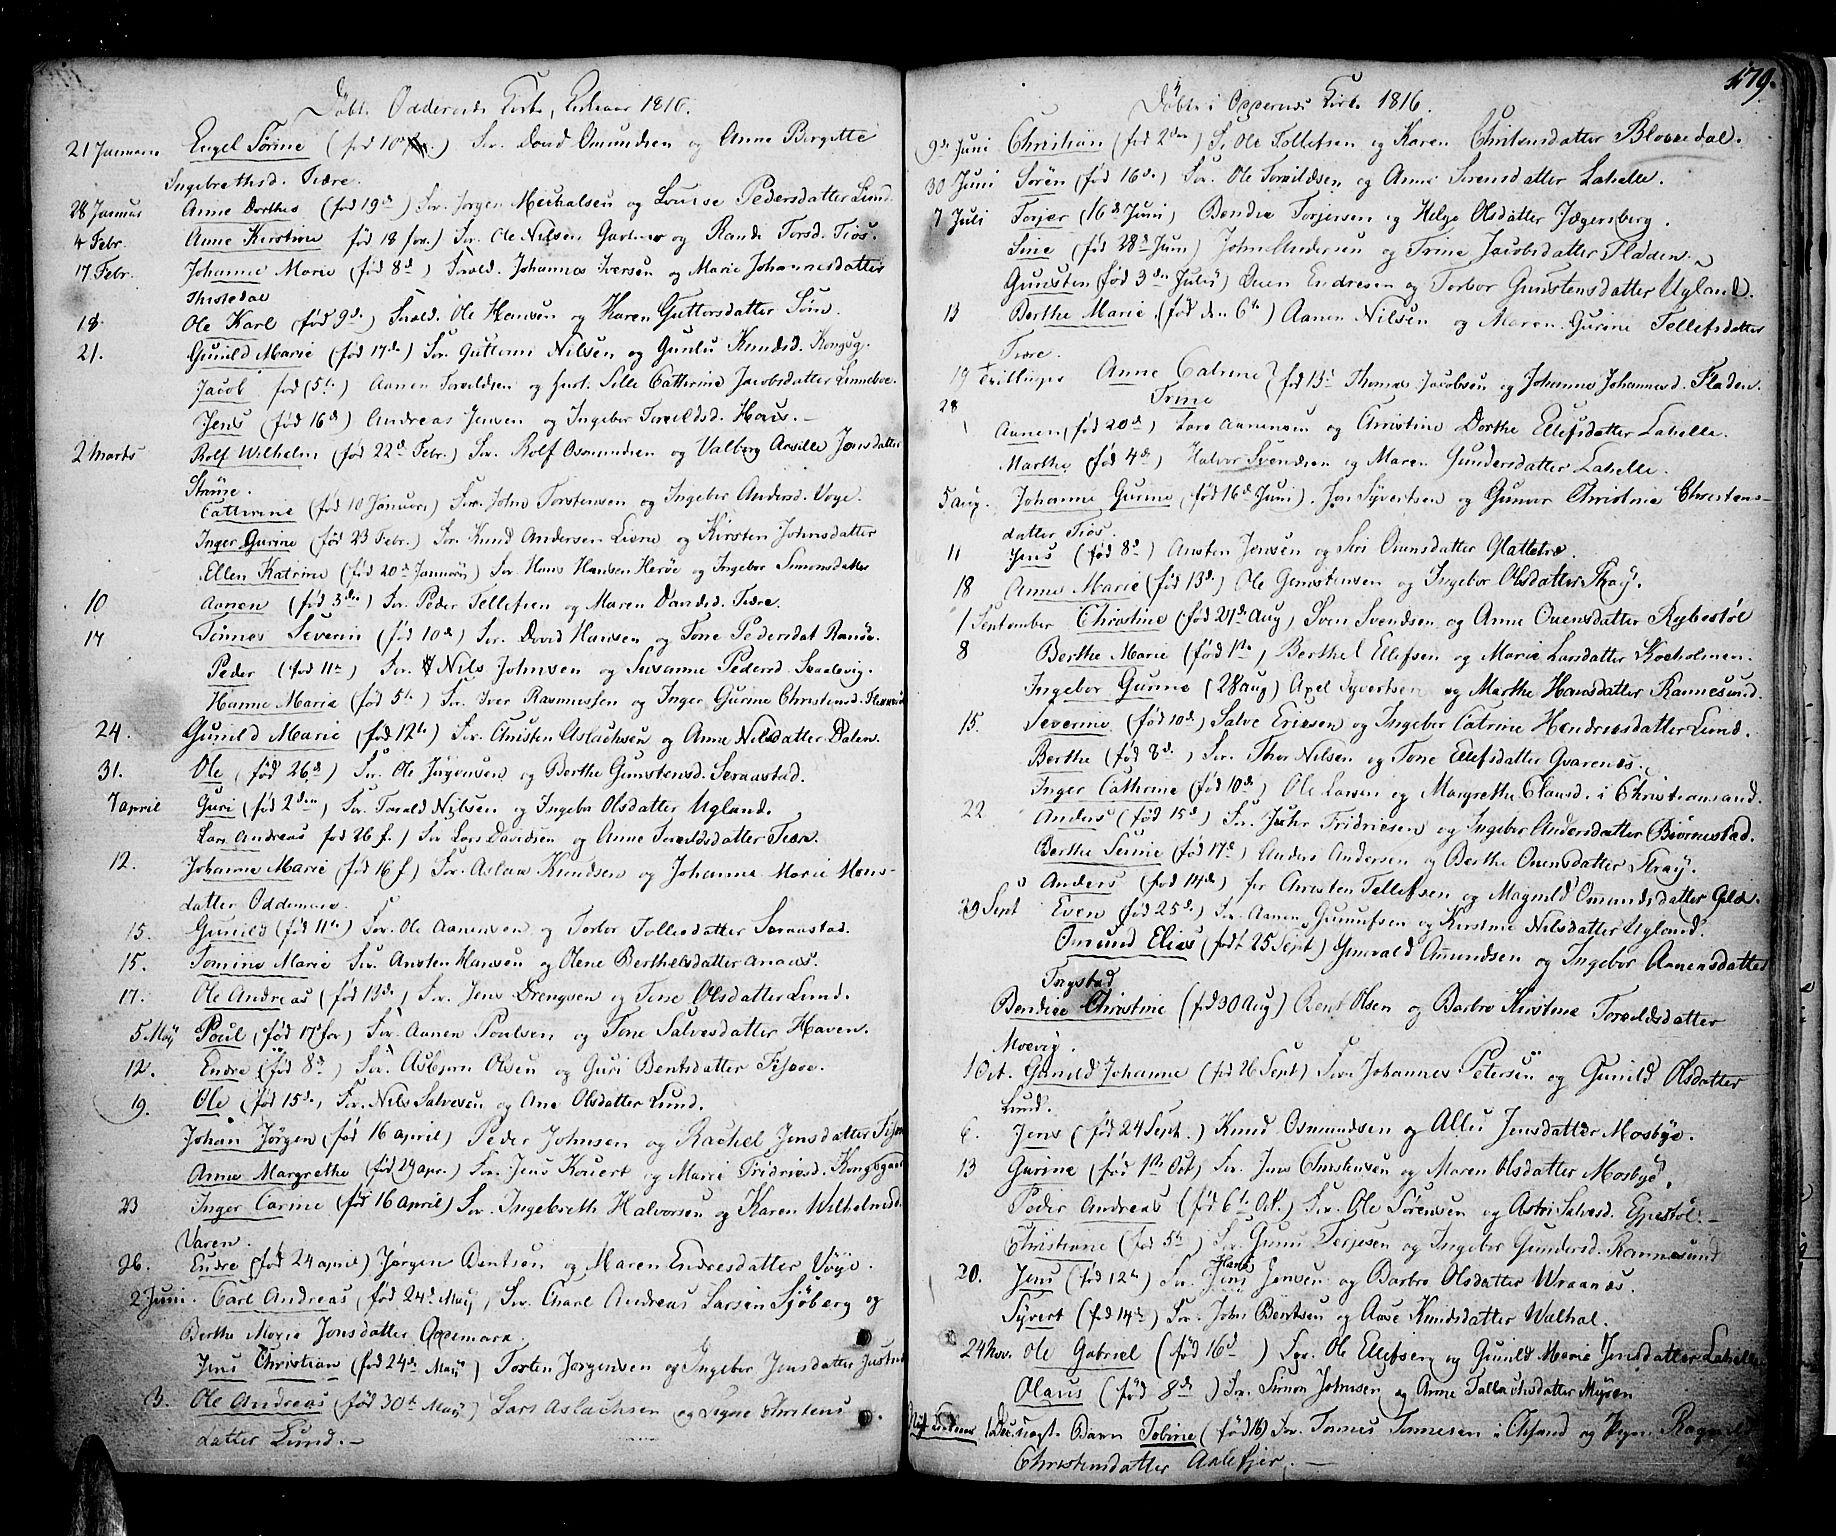 Døbte Oddernes Kirke, Kirkeaar 1816.
21 Januarii Engel Sørine (fød 10 ) For. David Omundsen og Anne Birgitte
Ingebrethsd. Tiære.
28 Januar Anne Dorthea (fød 19d) For. Jørgen Michalsen og Lovise Pedersdatter Lund.
4 Febr. Anne Kirstine fød 18 for.) For. Ole Nilsen og Rande Torsd. Tios.
17 Febr. Johanne Marie (fød 8d) Foræld. Johannes Iversen og Marie Johannesdatter
18. Ole Karl (fød 9d) Foræld. Ole Hansen og Karen Guttorsdatter Søm.
21. Gunild Marie (fød 17de) For. Guttorm Nilsen og Gunlu Knudsd. Kongsg.
Jacob fød (5te) Aanen Torvildsen og Sille Cathrine Jacobsdatter Linneboe.
Jens (fød 16d) Andreas Jensen og Ingebor Torvildsd. Haus.
2 Marts Rolf Wilhelm (fød 22d Febr.) For. Rolf Osmundsen og Valborg Jensdatter
Strøme.
Cathrine (fød 10 Januari) For. John Torstensen og Ingebor Andersd. Voge.
Inger Gurine (fød 23 Febr.) For. Knud Andersen Liene og Kirsten Johnsdatter
Ellen Katrine (fød 20d Januarii) For. Hans Hansen Herøe og Ingebor Simonsdatter
10 Aanen (fød 3die) For. Peder Tellefsen og Maren Davidsd. Tiære.
17 Tønnes Severin (fød 10de) For. David Hansen og Tone Pedersdat Randø.
Peder (fød 11te) For. Nils Johnsen og Susanne Pedersd. Skaalevig.
Hanne Marie (fød 5te) For. Iver Rasmussen og Inger Gurine Christensd.
24. Gunild Marie (fød 12te) For. Christen Aslachsen og Anne Nilsdatter Dalen.
31. Ole (fød 26d) For. Ole Jørgensen og Berthe Gunstensd. Soraastad.
7 april Guri (fød 2den) For. Torvald Nilsen og Ingebor Olsdatter Ugland.
Lars Andreas fød 26 f.) For Lars Davidsen og Anne Torvildsdatter Tiære.
12. Johanne Marie (fød 16 f) For. Aslak Knudsen og Johanne Marie Mons-
datter Oddernæs.
15. Gunild (fød 11te) For. Ole Aanensen og Torbor Tollevsdatter Soraastad.
15. Tomine Marie For. Ansten Hansen og Olene Berthelsdatter
17. Ole Andreas (fød 13de) For. Jens Drengsen og Tone Olsdatter Lund.
5 May Poul (fød 17 for) For. Aanen Poulsen og Tone Salvesdatter Haven.
12. Endre (fød 8d) For. Asbjørn Olsen og Guri Bentsdatter Fisjaae.
19. Ole (fød 15de) For. Nils Salvesen og Ane Olsdatter Lund.
Johan Jørgen (fød 16 april) Peder Johnsen og Rachel Jensdatter
Anne Margrethe (fød 29 apr.) For. Jens Kouert og Marie Fridrichsd. Kongsgaard
23 Inger Carine (fød 16 april) For. Ingebreth Halvorsen og Karen Wilhelmsd.
Varen.
26. Endre (fød 24 april) Jørgen Bentsen og Maren Endresdatter Voye.
2 Juni. Carl Andreas, fød 24d May, For. Charl Andreas Larsen Sjöberg og
Berthe Marie Jonsdatter
Jens Christian (fød 24de May) Torten Jørgensen og Ingebor Jensdatter Justn
3. Ole Andreas (fød 30t May) Lars Aslachsen og Signe Christens
datter Lund.
179.
Døbte i Oddernes Kirke 1816.
9de Juni Christian (fød 2den) F. Ole Tollefsen og Karen Christensdatter Blokkedal.
30 Juni Søren (fød 16de) For. Ole Torvildsen og Anne Sorensdatter Lahelle.
7 Juli Torjer (16d Juni) Bendix Torjersen og Helge Olsdatter Jægersberg.
Sine (fød 28d Juni) John Andersen og Trine Jacobsdatter Fladen.
Gunsten (fød 3die July) Ouen Endresen og Torbor Gunstensdatter Ugland.
13 Berthe Marie (fød den 6te) Aanen Nilsen og Maren Gurine Tellefsdatter
Tiære.
19 Tvillinger Anne Catrine } fød 13d Thomas Jacobsen og Johanne Johannesd. Fladen.
Trine
28
Aanen, fød 20d) Lars Aanensen og Christine Dorthe Ellefsdatter Lahelle.
Marthe (fød 4d) Halvor Svendsen og Maren Gundersdatter Lahelle.
5 aug. Johanne Gurine (fød 16d Juni). Jon Syvertsen og Gunvor Christine Christens-
datter Tios.
11 Jens (fød 8d) Ansten Jensen og Siri Ouensdatter Glattetræ.
18 Anne Marie (fød 13d) Ole Gunstensen og Ingebor Olsdatter Straj.
1 September Christine (fød 21de Aug) Sven Svendsen og Anne Ouensdatter Rybestøl
8 Berthe Marie (fød 1ste) Berthel Ellefsen og Marie Larsdatter Koeholmen.
Ingebor Gurine (28 aug) Axel Syvertsen og Marthe Hansdatter Rannesund.
15. Severine (fød 10d) Salve Ericsen og Ingeber Catrine Hendricsdatter Lund.
Berthe (fød 8d) For. Thor Nilsen og Tone Ellefsdatter Gvarenæs.
Inger Cathrine (fød 10d) Ole Larsen og Margrethe Clausd. i Christiansand.
22 Anders (fød 15d) For. Fridricsen og Ingebor Andersdatter Biørnestad.
Berthe Serine (fød 17d) Anders Andersen og Berthe Ouensdatter Straj.
Anders (fød 14de) for Christen Tellefsen og Magnild Omundsdatter
29 Sept Even (fød 25d) For. Aanen Gunufsen og Kirstine Nilsdatter Ugland.
Omund Elias (født 25 Sept) Gunvald Omundsen og Ingebor Aanensdatter
Tingstad
Bendice Christine (fød 30 Aug) Bent Olsen og Barbro Kirstine Torvildsdatter
Moevig.
1 Oct. Gunild Johanne (fød 26 Sept) For. Johannes Petersen og Gunild Olsdatter
Lund.
6. Jens (fød 24 Sept.) Knud Osmundsen og Allis Jensdatter Mosbye.
13 Gurine (fød 1ste Oct) For. Jens Christensen og Maren Olsdatter Mosbye.
Peder Andreas (fød 6t Oct.) For. Ole Sørensen og Astri Salvesd. Egestøl.
Christiane (fød 5te) For. Gunu Terjesen og Ingebor Gundersd. Rannesund
20. Jens (fød 12te) For. Hans Jensen og Barbro Olsdatter Wraanæs.
Syvert (fød 14de) For. John Bentsen og Aase Knudsdatter Walhal.
24 Nov. Ole Gabriel (fød 16d) For. Ole Ellefsen og Gunild Marie Jensdatter Lahelle
Olaus (fød 8de) For. Simon Johnsen og Anne Tallachsdatter Myren
1 Dec. uægt. Barn Tobine (fød 16) For. Tønnes Tønnesen i Chsand og Pigen Ragnild
Christensdatter